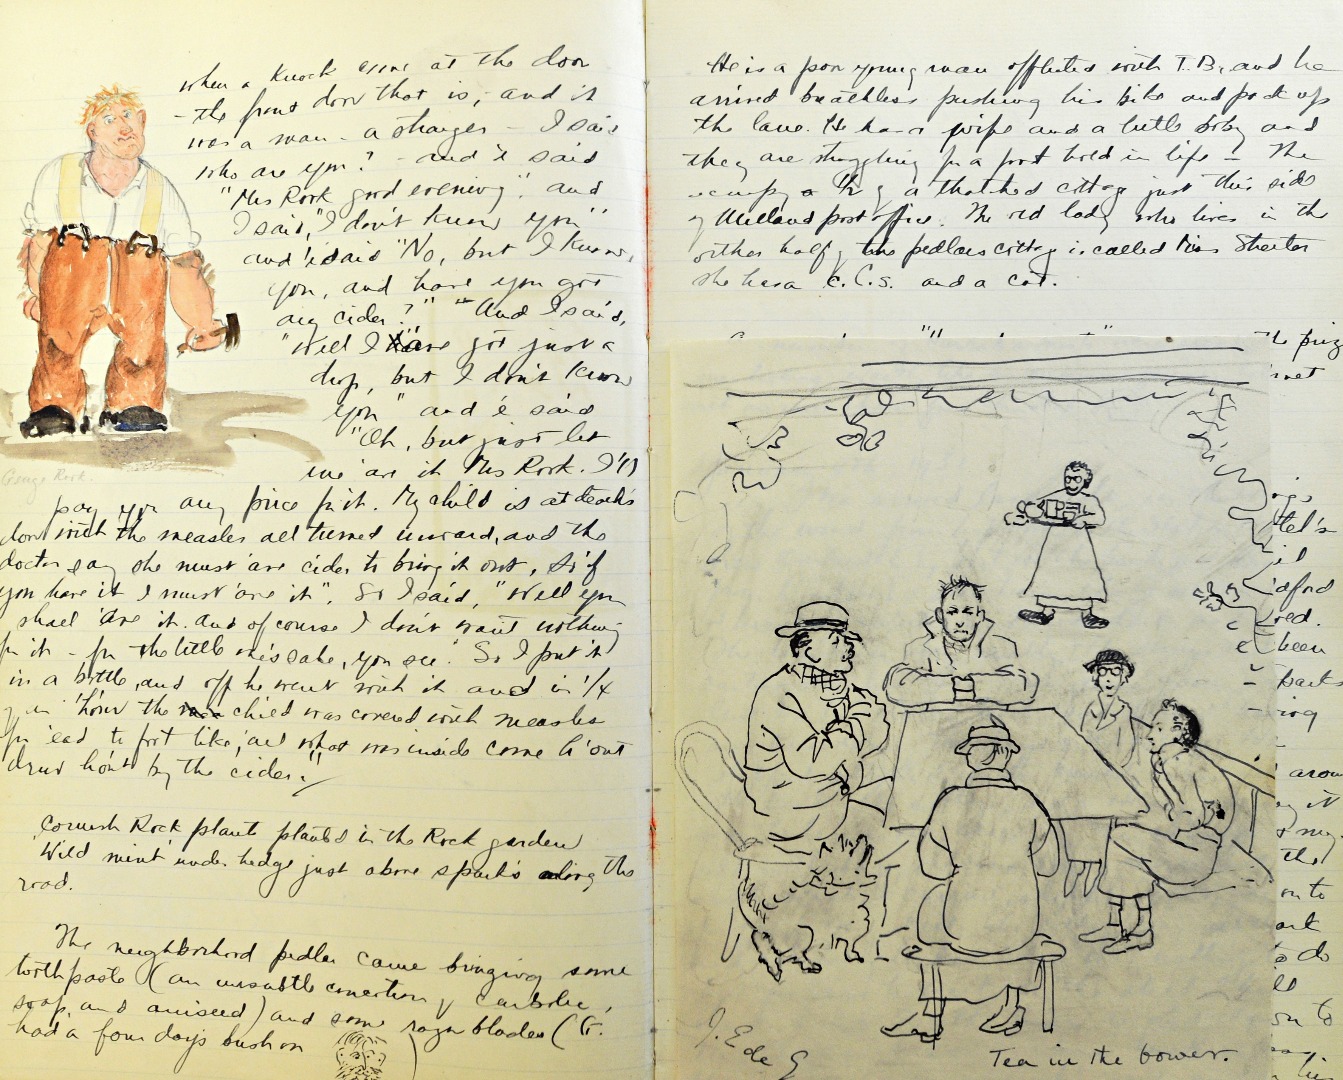 when a knock came at the door
- the front door that is, - and it
was a man - a stranger - I said
who are you? - and 'e said
"Mrs Rook good evening", and
I said, "I don't know you"
and 'e said "No, but I know
you, and have you got
any cider?" "And I said,
"Well I have got just a
drop, but I don't know
you" and 'e said
"Oh, but just let
me 'ave it Mrs Rook. I'll
George Rook.
pay you any price for it. My child is at death's
door with the measles all turned inward, and the
doctor say she must 'ave cider to bring it out, so if
you have it I must 'ave it". So I said, "Well you
shall 'ave it. And of course I don't want nothing
for it - for the little one's sake, you see". So I put it
in a bottle, and off he went with it and in 1/4
of an 'hour the child was covered with measles
from 'ead to foot like; all what was inside come h'out
drew h'out by the cider."
Cornish Rock plants planted in the Rock garden
'Wild mint' under hedge just above Spark's along the
road.
The neighborhood pedlar came bringing some
toothpaste (an unsubtle concoction of carbolic,
soap, and aniseed) and some razor blades (G.
had a four days bush on )
He is a poor young man afflicted with T.B, and he
arrived breathless pushing his bike and pack up
the lane. He has a wife and a little baby and
they are struggling for a foot hold in life - The
occupy a 1/2 of a thatched cottage just this side
of Milland post office. The old lady who lives in the
other half of the pedlars cottage is called Shorter
she has a E.C.S. and a cat.
the
J. Ede G
Tea in the bower.
been
the
to